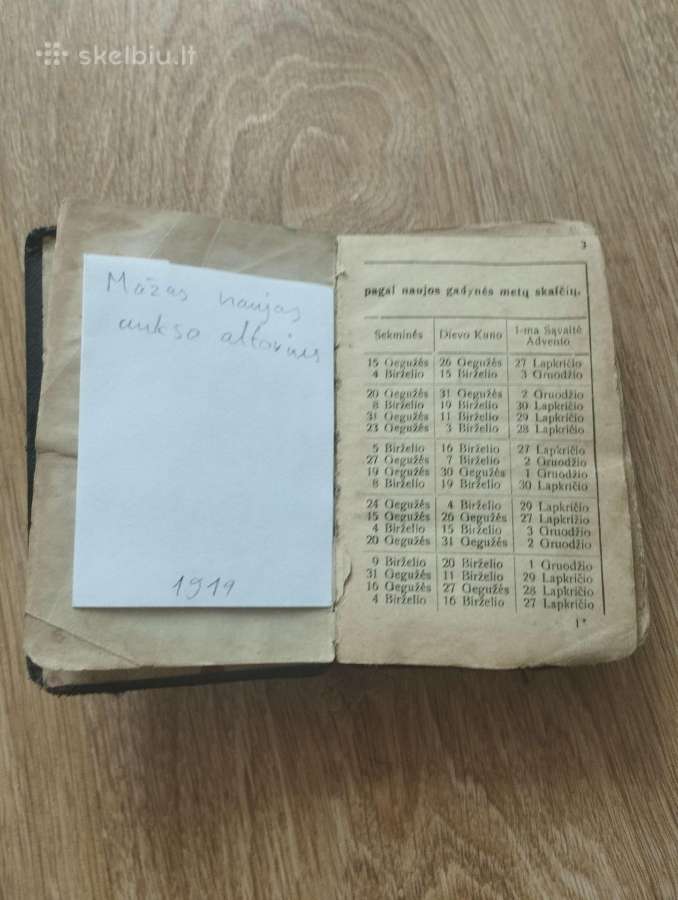 skelbiu.lt
Mažas naujas
aukso altorius
1919
3
pagal naujos gadynės metų skaičių.
Sekminės Dievo Kuno 1-ma Sąvaitė
Advento
15 Gegužės 26 Gegužės 27 Lapkričio
4 Birželio 15 Birželio 3 Gruodžio
20 Gegužės 31 Gegužės 2 Gruodžio
8 Birželio 19 Birželio 30 Lapkričio
31 Gegužės 11 Birželio 29 Lapkričio
23 Gegužės 3 Birželio 28 Lapkričio
5 Birželio 16 Birželio 27 Lapkričio
27 Gegužės 7 Birželio 2 Gruodžio
19 Gegužės 30 Gegužės 1 Gruodžio
8 Birželio 19 Birželio 30 Lapkričio
24 Gegužės 4 Birželio 29 Lapkričio
15 Gegužės 26 Gegužės 27 Lapkrižio
4 Birželio 15 Birželio 3 Gruodžio
20 Gegužės 31 Gegužės 2 Gruodžio
9 Birželio 20 Birželio 1 Gruodžio
31 Gegužės 11 Birželio 29 Lapkričio
16 Gegužės 27 Gegužės 28 Lapkričio
4 Birželio 16 Birželio 27 Lapkričio
1*